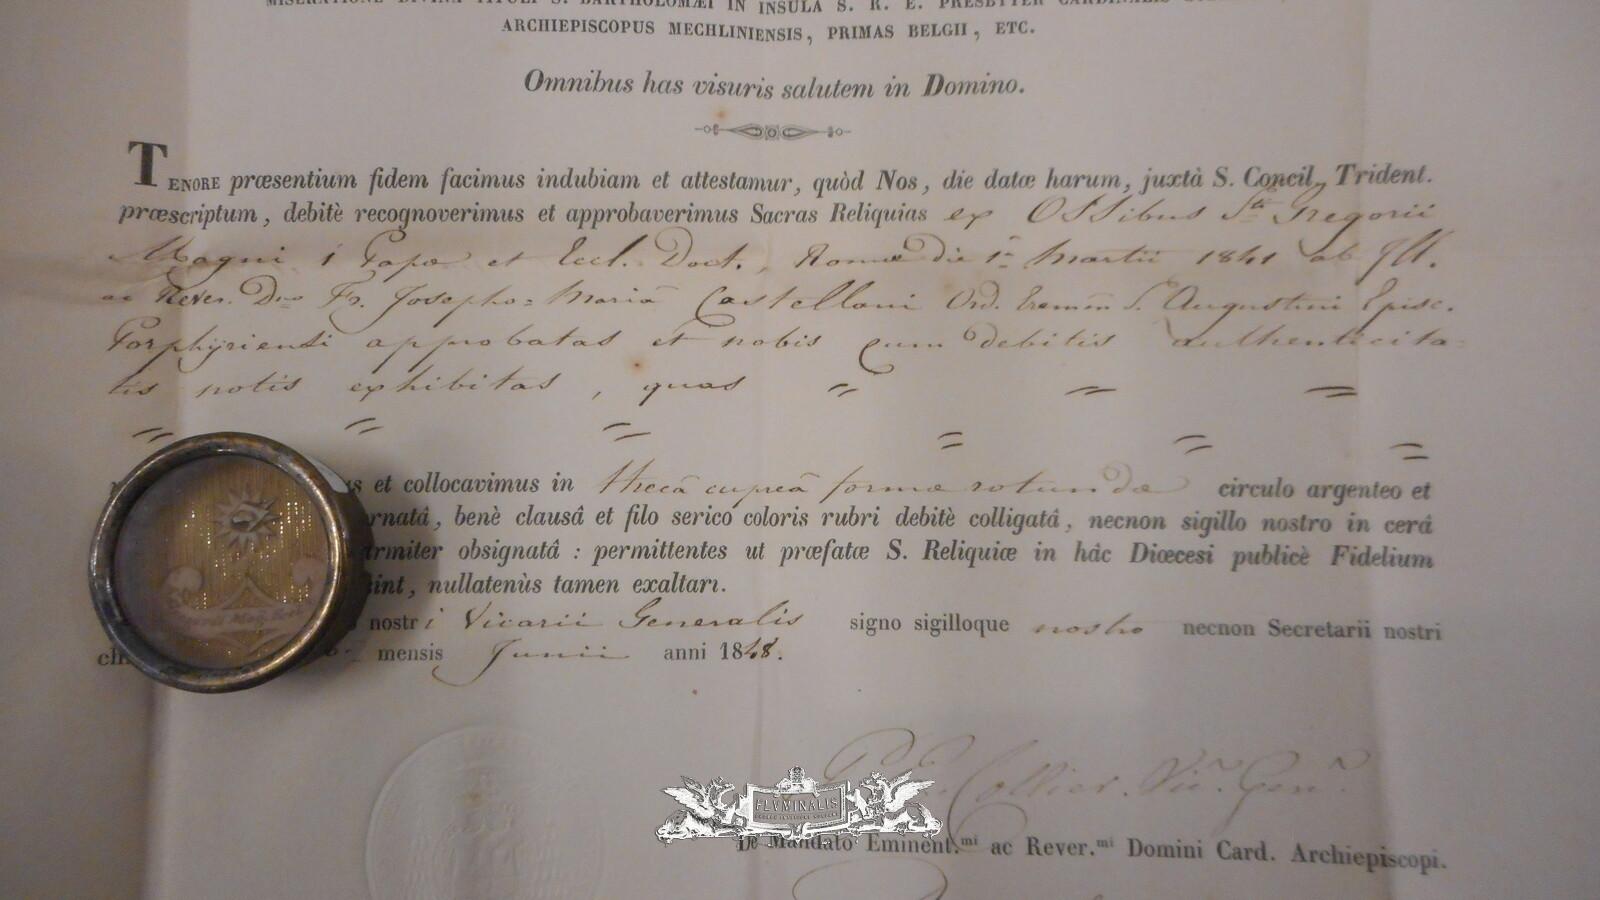 MISERATIONE DIVINA TITULI S. BARTHOLOMÆI IN INSULA S. R. E. PRESBYTER CARDINALIS
ARCHIEPISCOPUS MECHLINIENSIS, PRIMAS BELGII, ETC.
Omnibus has visuris salutem in Domino.
TENORE præsentium fidem facimus indubiam et attestamur, quòd Nos, die datæ harum, juxtà S. Concil. Trident.
præscriptum, debitè recognoverimus et approbaverimus Sacras Reliquias ex Ossibus Sti Gregorii
Magni 1 Papæ et Eccl. Doct., Romæ die 1â Martii 1841 ab Ill.
ac Rever. Dno Fr. Josepho=Mariâ Castellani Ord. Eremm S. Augustini Episc.
Porphyriensi approbatas et nobis cum debitis authenticita=
tis notis exhibitas, quas
et collocavimus in thecâ cupreâ formæ rotundæ circulo argenteo et
rnatâ, benè clausâ et filo serico coloris rubri debitè colligatâ, necnon sigillo nostro in cerâ
rmiter obsignatâ : permittentes ut præfatæ S. Reliquiæ in hâc Diœcesi publicè Fidelium
int, nullatenùs tamen exaltari.
nostri Vicarii Generalis signo sigilloque nostro necnon Secretarii nostri
mensis Junii anni 1848.
Collier. Vic. Gen.
FLVMINALIS
De Mandato Eminent.mi ac Rever.mi Domini Card. Archiepiscopi.